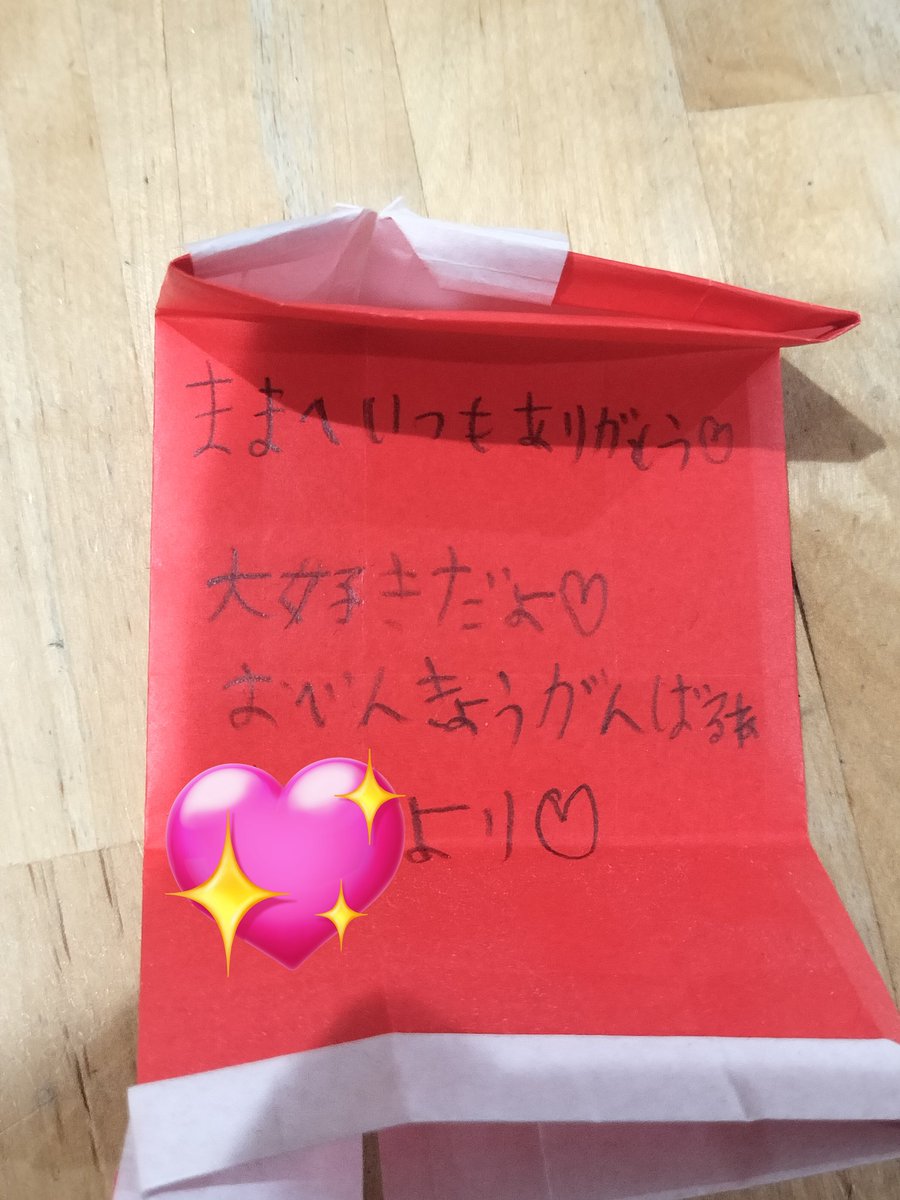 ままへいつもありがとう♡
大好きだよ♡
おべんきょうがんばるね
より♡